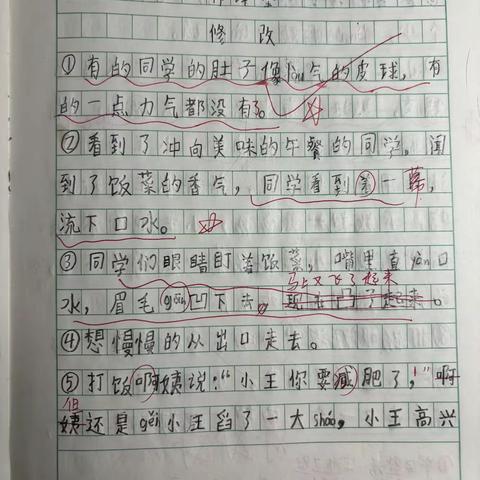 修 改
①有的同学的肚子像lòu气的皮球，有
的一点力气都没有了。
②看到了冲向美味的午餐的同学。闻
到了饭菜的香气，同学看到这一幕，
流下口水。
③同学们眼睛盯着饭菜，嘴里直yàn口
马上又飞了起来
水，眉毛gāng凹下去。现在凸了起来。
④想慢慢的从出口走去。
⑤打饭啊姨说：“小王你要减肥了，！”啊
但
姨还是gěi小王舀了一大sháo，小王高兴